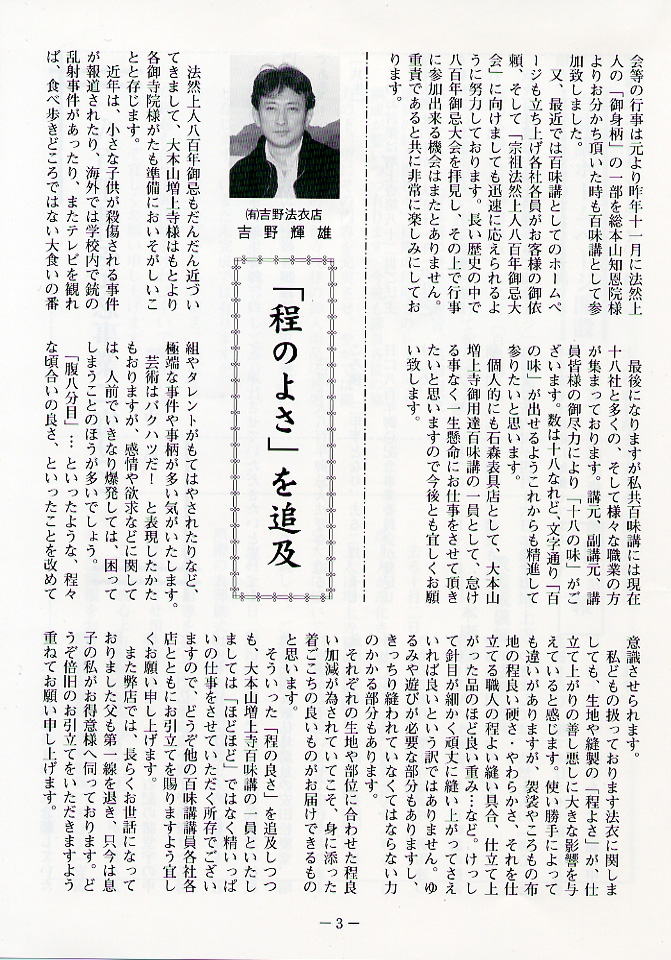 会等の行事は元より昨年十一月に法然上
人の「御身柄」の一部を総本山知恩院様
よりお分かち頂いた時も百味講として参
加致しました。
又、最近では百味講としてのホームペ
ージも立ち上げ各社各員がお客様の御依
頼、そして「宗祖法然上人八百年御忌大
会」に向けましても迅速に応えられるよ
うに努力しております。長い歴史の中で
八百年御忌大会を拝見し、その上で行事
に参加出来る機会はまたとありません。
重責であると共に非常に楽しみにしてお
ります。
最後になりますが私共百味講には現在
十八社と多くの、そして様々な職業の方
が集まっております。講元、副講元、講
員皆様の御尽力により「十八の味」がご
ざいます。数は十八なれど、文字通り「百
の味」が出せるようこれからも精進して
参りたいと思います。
個人的にも石森表具店として、大本山
増上寺御用達百味講の一員として、怠け
る事なく一生懸命にお仕事をさせて頂き
たいと思いますので今後とも宜しくお願
い致します。
「程のよさ」を追及
㈲吉野法衣店
吉野輝雄
法然上人八百年御忌もだんだん近づい
てきまして、大本山増上寺様はもとより
各御寺院様がたも準備においそがしいこ
とと存じます。
近年は、小さな子供が殺傷される事件
が報道されたり、海外では学校内で銃の
乱射事件があったり、またテレビを観れ
ば、食べ歩きどころではない大食いの番
組やタレントがもてはやされたりなど、
極端な事件や事柄が多い気がいたします。
芸術はバクハツだ！と表現したかた
もおりますが、感情や欲求などに関して
は、人前でいきなり爆発しては、困って
しまうことのほうが多いでしょう。
「腹八分目」…といったような、程々
な頃合いの良さ、といったことを改めて
意識させられます。
私どもの扱っております法衣に関しま
しても、生地や縫製の「程よさ」が、仕
立て上がりの善し悪しに大きな影響を与
えていると感じます。使い勝手によって
も違いがありますが、袈裟やころもの布
地の程良い硬さ・やわらかさ、それを仕
立てる職人の程よい縫い具合、仕立て上
がった品のほど良い重み…など。けっし
て針目が細かく頑丈に縫い上がってさえ
いれば良いという訳ではありません。ゆ
るみや遊びが必要な部分もありますし、
きっちり縫われていなくてはならない力
のかかる部分もあります。
それぞれの生地や部位に合わせた程良
い加減が為されていてこそ、身に添った
着ごこちの良いものがお届けできるもの
と思います。
そういった「程の良さ」を追及しつつ
も、大本山増上寺百味講の一員といたし
ましては「ほどほど」ではなく精いっぱ
いの仕事をさせていただく所存でござい
ますので、どうぞ他の百味講講員各社各
店とともにお引立てを賜りますよう宜し
くお願い申し上げます。
また弊店では、長らくお世話になって
おりました父も第一線を退き、只今は息
子の私がお得意様へ伺っております。ど
うぞ倍旧のお引立てをいただきますよう
重ねてお願い申し上げます。
－3－